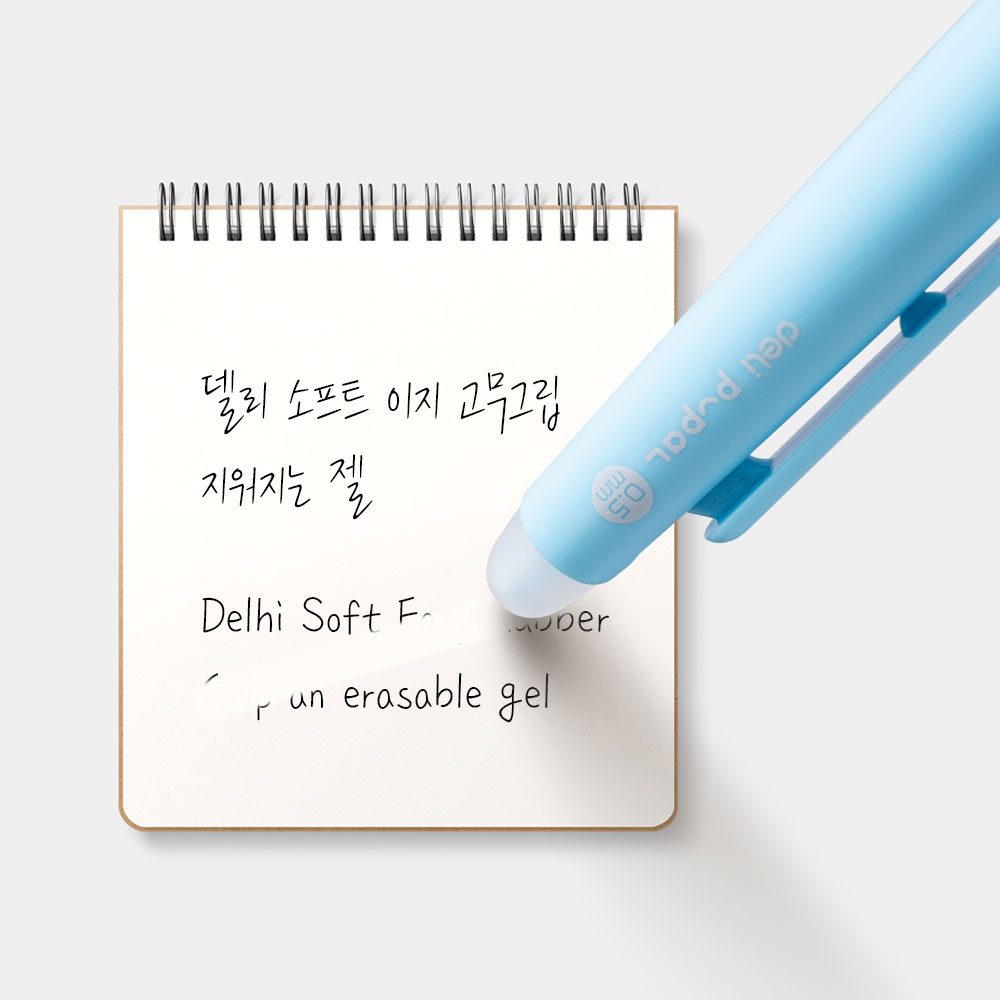 델리 소프트 이지 고무그립
지워지는 젤
Delhi Soft Easy Rubber
Grip an erasable gel
deli pypal
0.5
mm